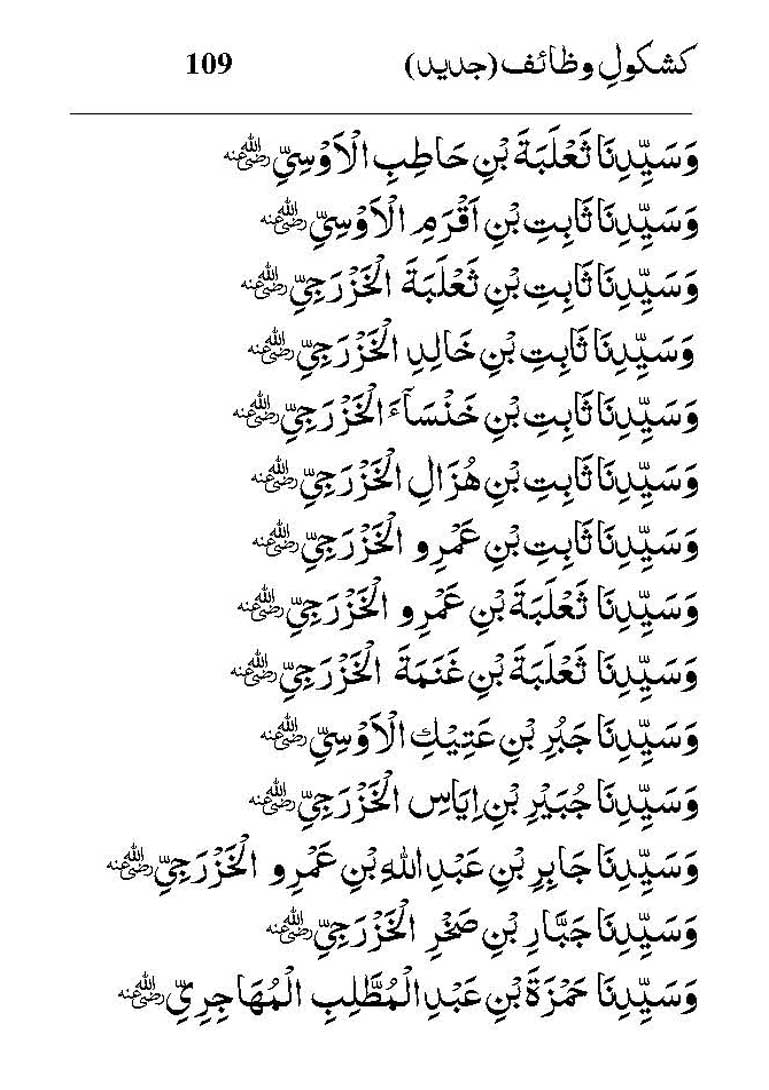 کشکولِ وظائف (جدید) 109
وَسَيِّدِنَا ثَعْلَبَةَ بْنِ حَاطِبِ الْاَوْسِيِّ رضی اللہ عنہ
وَسَيِّدِنَا ثَابِتِ بْنِ اَقْرَمِ الْاَوْسِيِّ رضی اللہ عنہ
وَسَيِّدِنَا ثَابِتِ بْنِ ثَعْلَبَةَ الْخَزْرَجِيِّ رضی اللہ عنہ
وَسَيِّدِنَا ثَابِتِ بْنِ خَالِدِ الْخَزْرَجِيِّ رضی اللہ عنہ
وَسَيِّدِنَا ثَابِتِ بْنِ خَنْسَآءَ الْخَزْرَجِيِّ رضی اللہ عنہ
وَسَيِّدِنَا ثَابِتِ بْنِ هُزَالِ الْخَزْرَجِيِّ رضی اللہ عنہ
وَسَيِّدِنَا ثَابِتِ بْنِ عَمْرِو الْخَزْرَجِيِّ رضی اللہ عنہ
وَسَيِّدِنَا ثَعْلَبَةَ بْنِ عَمْرِو الْخَزْرَجِيِّ رضی اللہ عنہ
وَسَيِّدِنَا ثَعْلَبَةَ بْنِ غَنَمَةَ الْخَزْرَجِيِّ رضی اللہ عنہ
وَسَيِّدِنَا جَبُرِ بْنِ عَتِيْكِ الْاَوْسِيِّ رضی اللہ عنہ
وَسَيِّدِنَا جُبَيْرِ بْنِ اِيَاسِ الْخَزْرَجِيِّ رضی اللہ عنہ
وَسَيِّدِنَا جَابِرِ بْنِ عَبْدِ اللهِ بْنِ عَمْرِو الْخَزْرَجِيِّ رضی اللہ عنہ
وَسَيِّدِنَا جَبَّارِ بْنِ صَخْرِ الْخَزْرَجِيِّ رضی اللہ عنہ
وَسَيِّدِنَا حَمْزَةَ بْنِ عَبْدِ الْمُطَّلِبِ الْمُهَاجِرِيِّ رضی اللہ عنہ